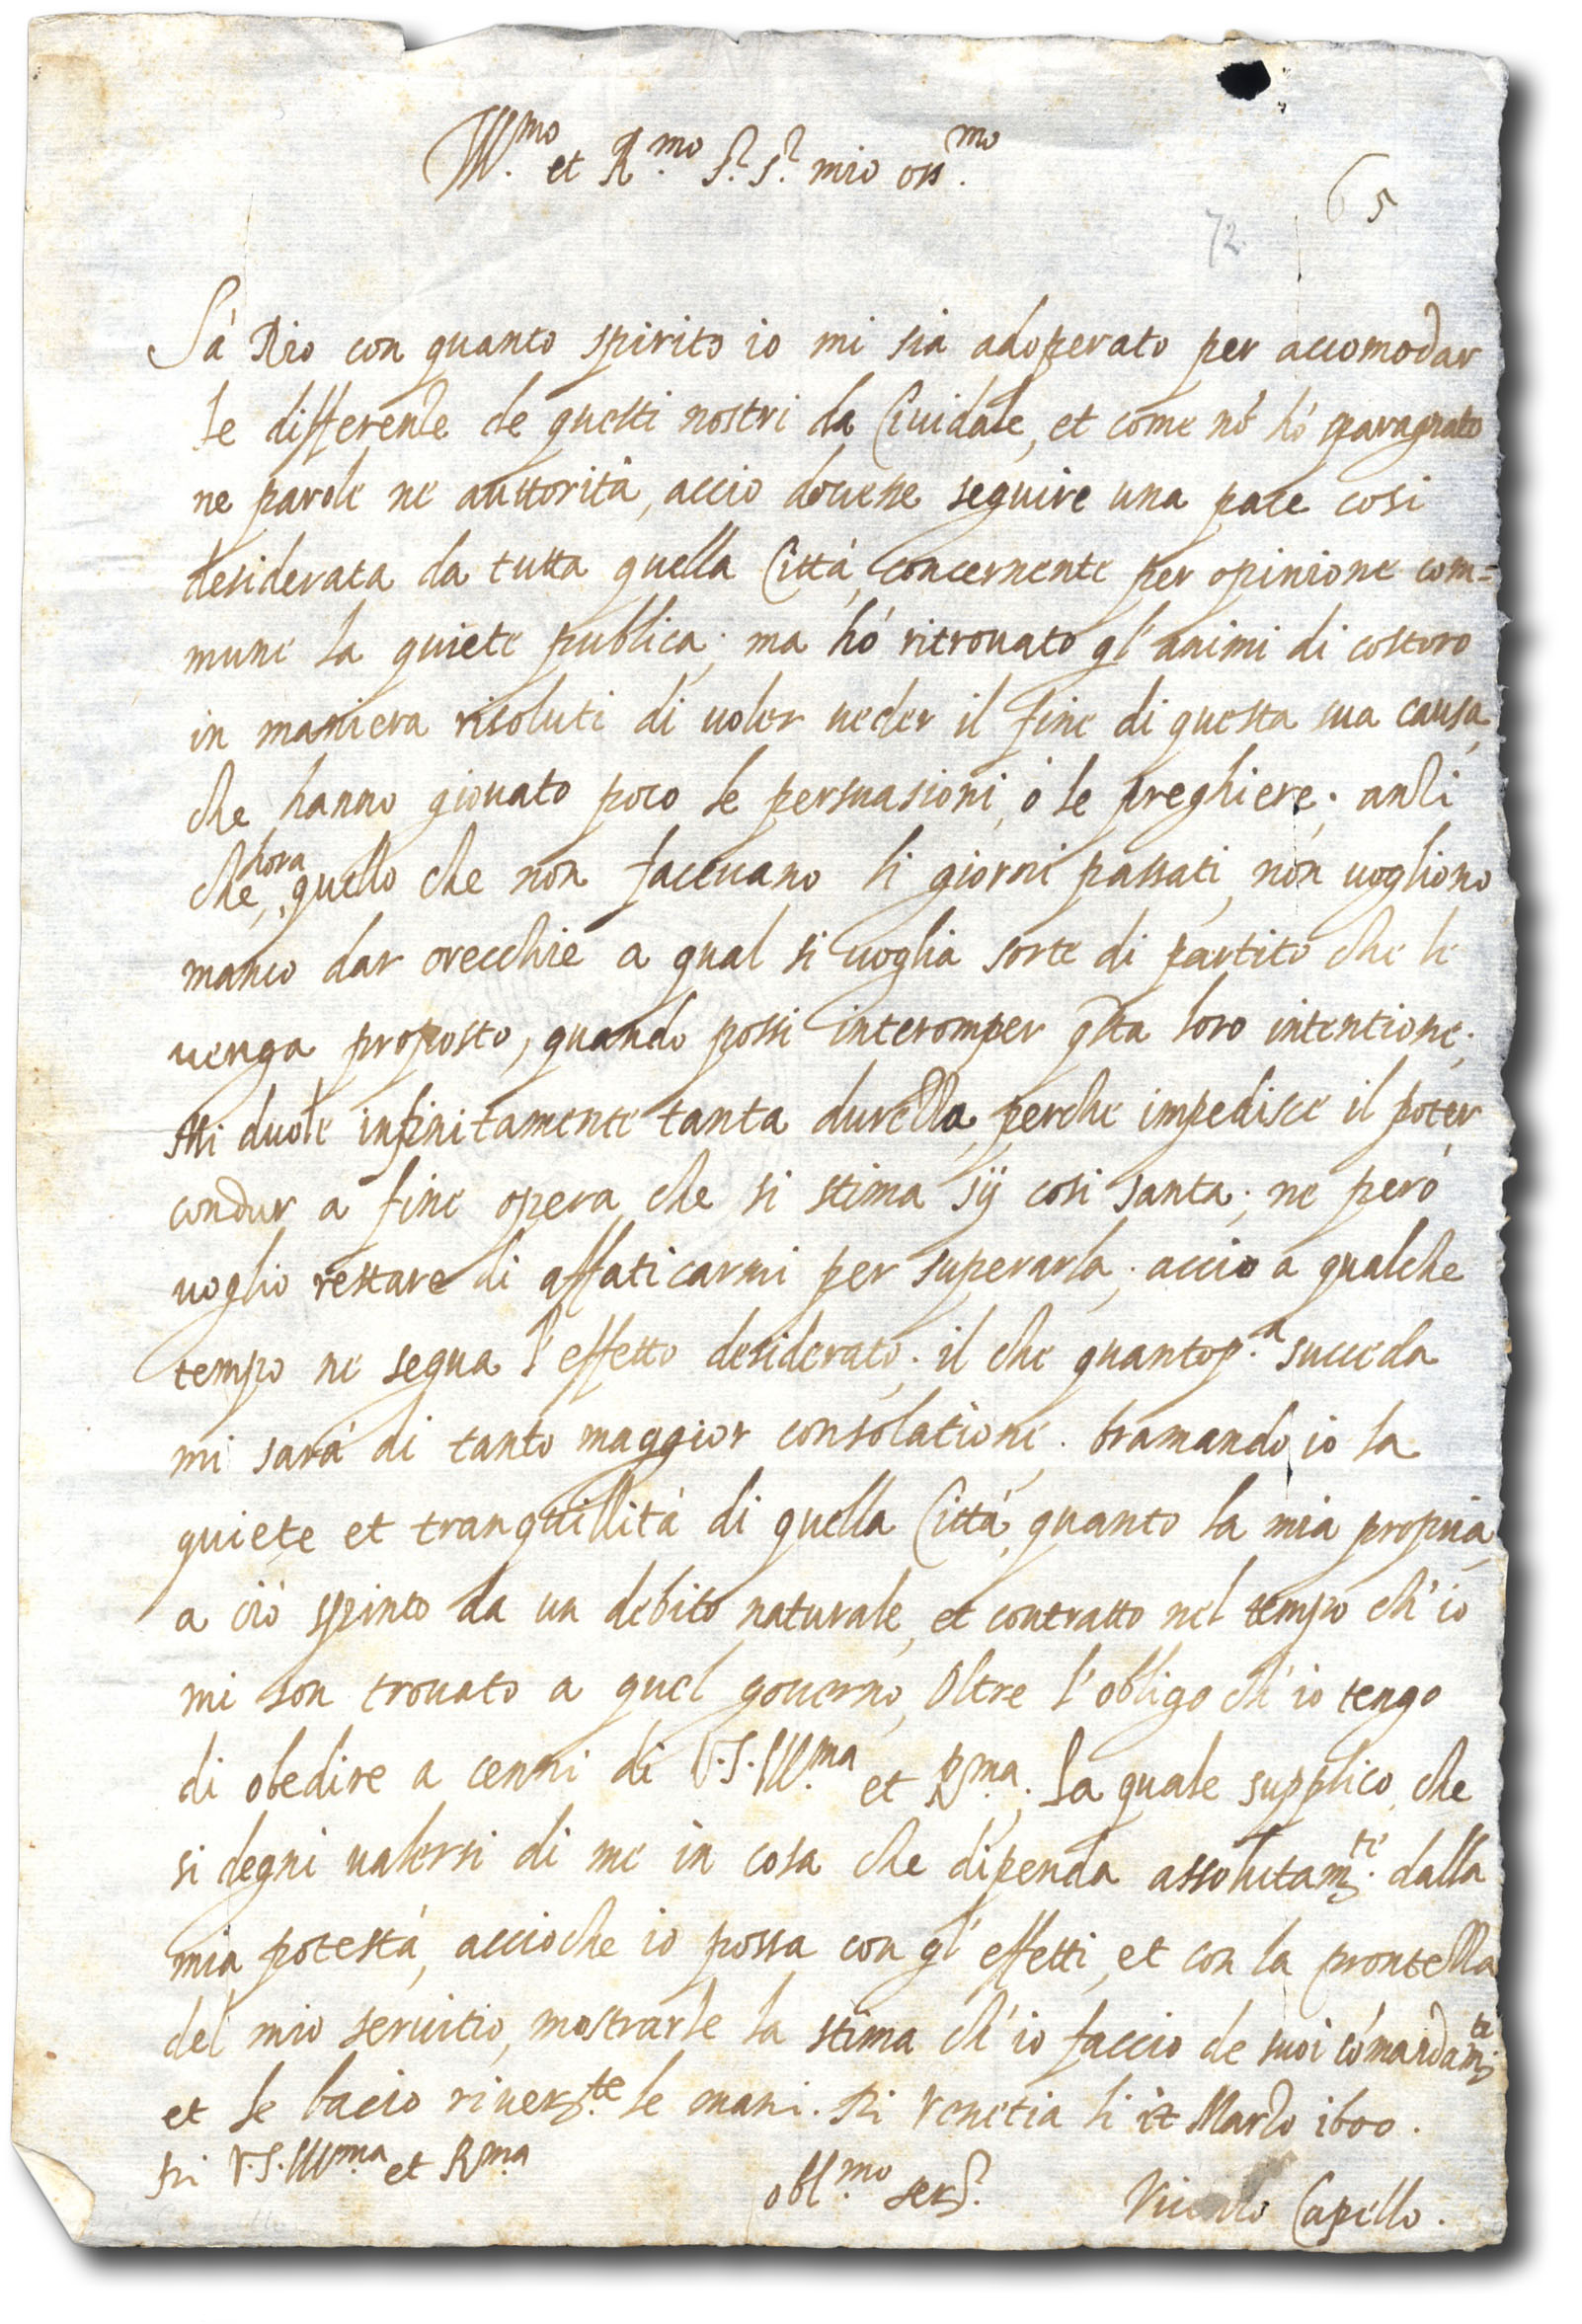 Ill.mo et R.mo S.r S.r mio oss.mo
65
72.
Sà Dio con quanto spirito io mi sia adoperato per accomodar
le differenze de questi nostri da Ciuidale, et come nõ hò sparagnato
ne parole ne auttorità, accio douesse seguire una pace cosi
desiderata da tutta quella Città, concernente per opinione com=
mune la quiete publica; ma hò ritrouato gl'animi di costoro
in maniera risoluti di uoler ueder il fine di questa sua causa,
che hanno giouato poco le persuasioni, ò le preghiere; anzi
che, hora quello che non faceuano li giorni passati, non uogliono
manco dar orecchie a qual si uoglia sorte di partito che le
uenga proposto, quando possi interomper q̃sta loro intentione;
Mi duole infinitamente tanta durezza, perche impedisce il poter
condur a fine opera, che si stima sij cosi santa; ne però
uoglio restare di affaticarmi per superarla; accio a qualche
tempo ne segua l'effetto desiderato; il che quantop.a succeda
mi sarà di tanto maggior consolatione; bramando io la
quiete et tranquillità di quella Città, quanto la mia propria,
a ciò spinto da un debito naturale, et contratto nel tempo ch'io
mi son trouato a quel gouerno, Oltre l'obligo ch'io tengo
di obedire a cenni di V.S.Ill.ma et R.ma; la quale supplico, che
si degni ualersi di me in cosa che dipenda assolutam.te dalla
mia potestà, accioche io possa con gl'effetti, et con la prontezza
del mio seruitio, mostrarle la stima ch'io faccio de suoi cõmandam.ti
et le bacio riuer.te le mani. Di Venetia li 17 Marzo 1600.
Di V.S.Ill.ma et R.ma
obl.mo ser.r
Capello.